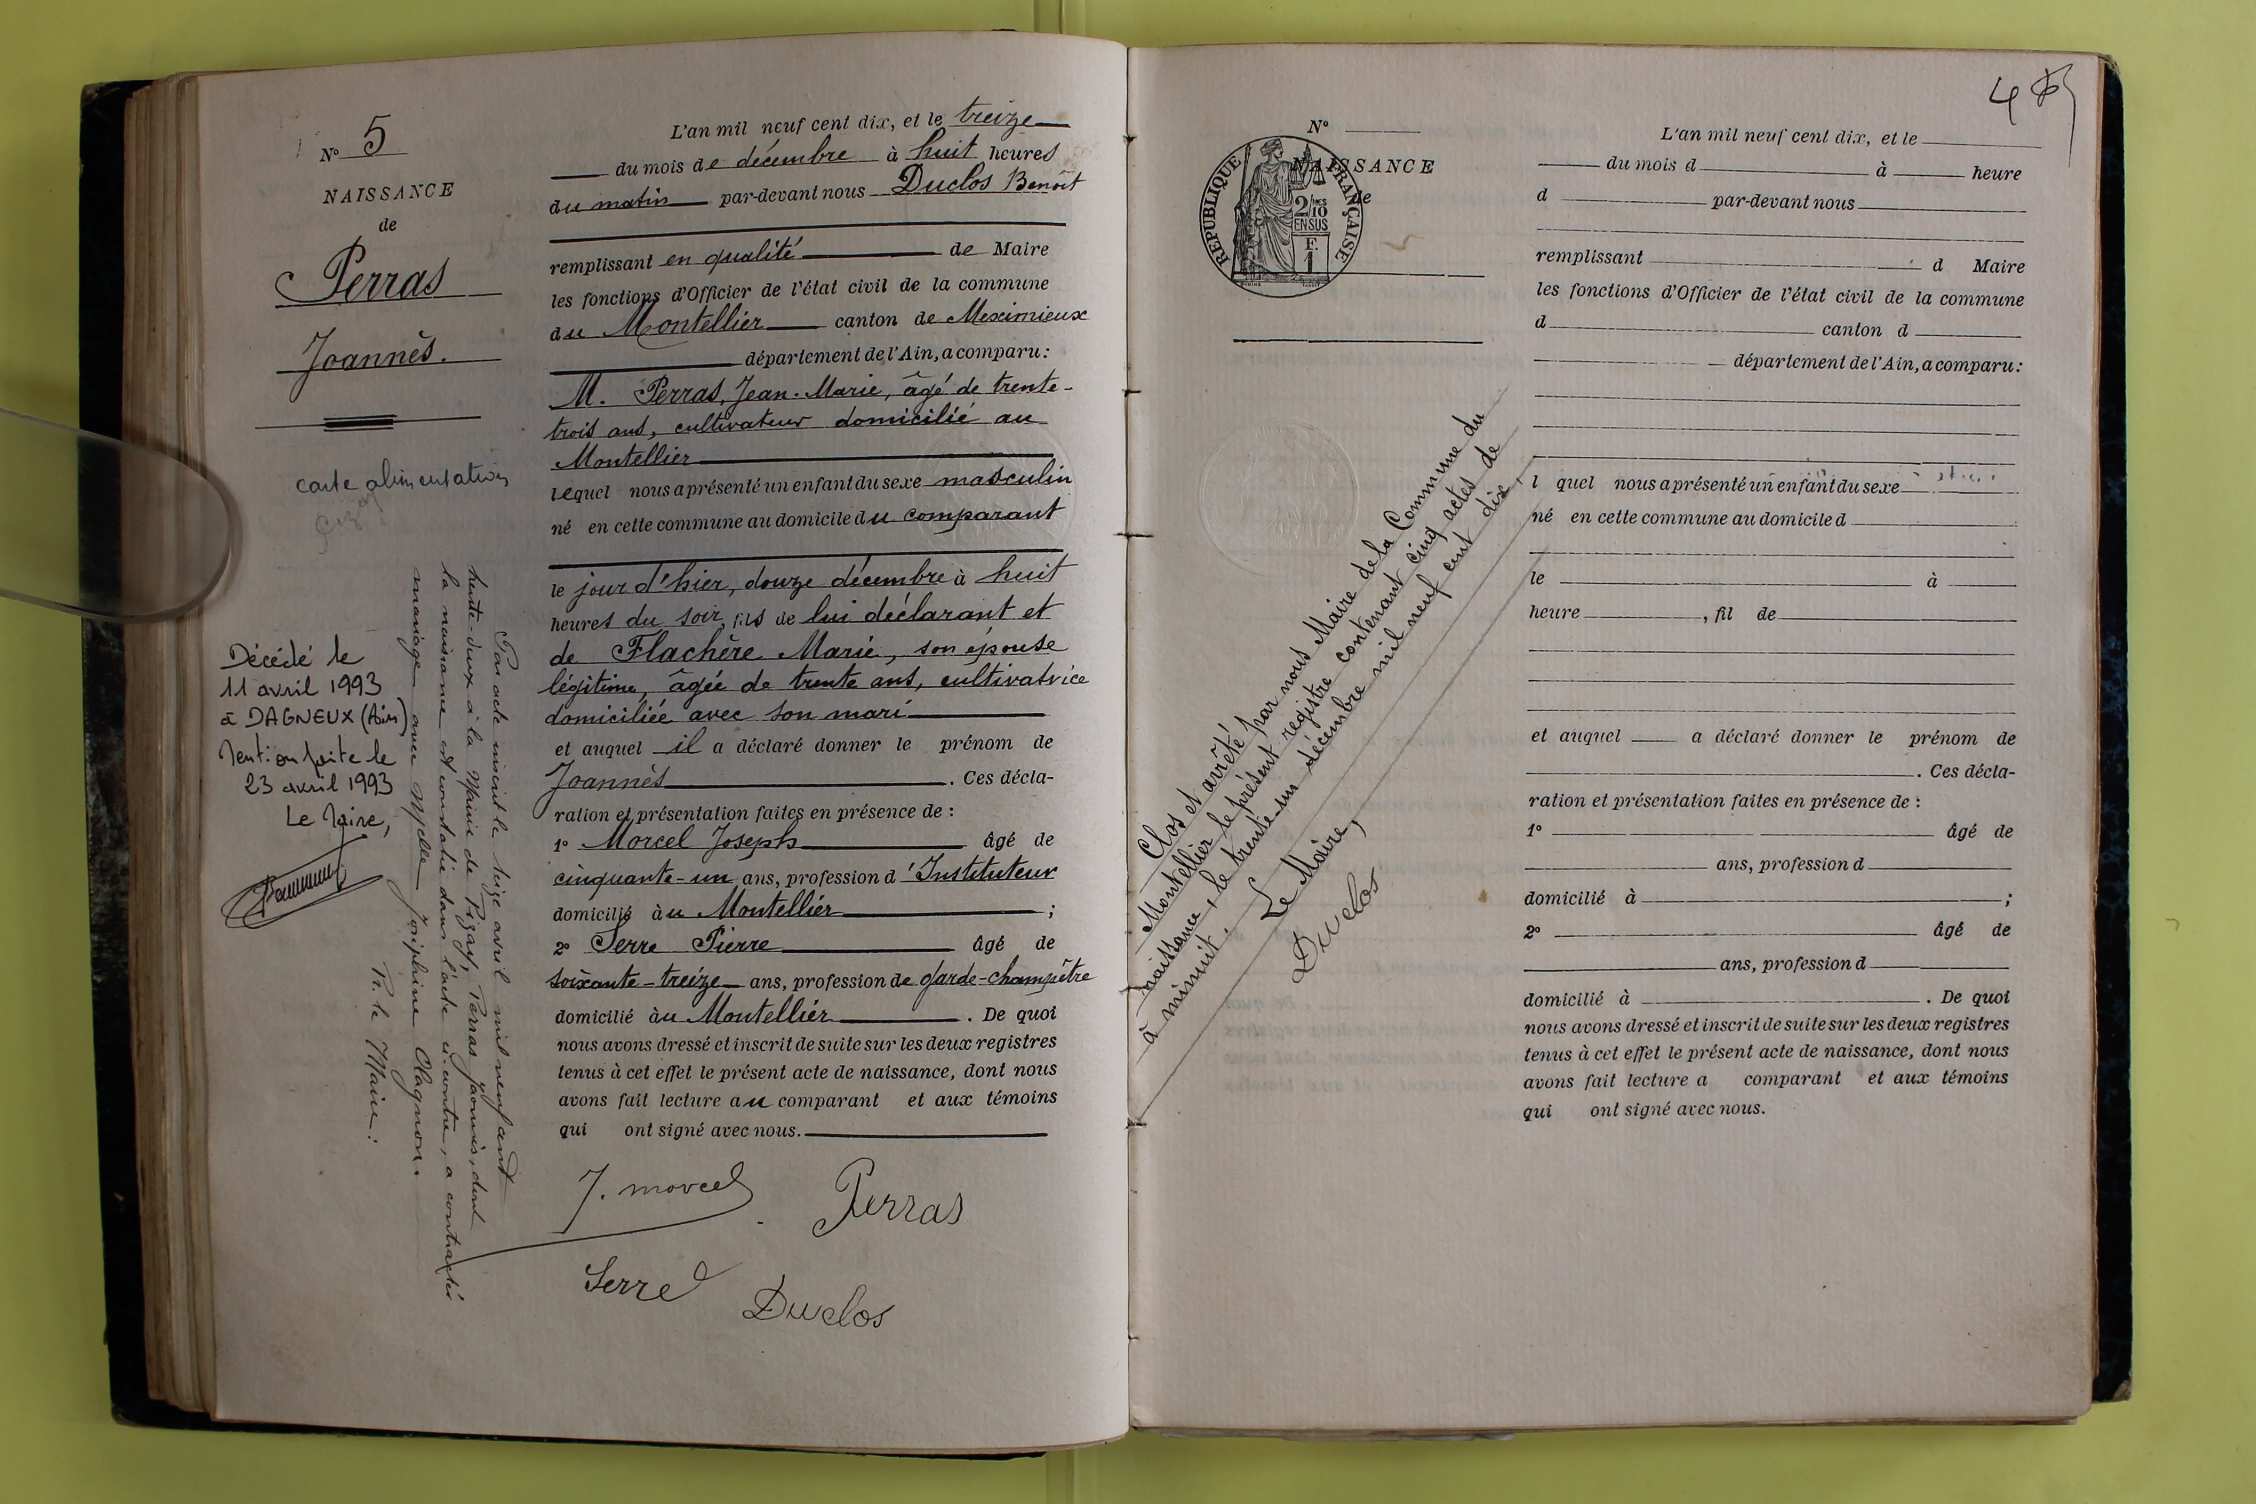 N° 5
NAISSANCE
de
Perras
Joannès.
carte alimentation
Décédé le
11 avril 1993
à DAGNEUX (Ain)
Mention faite le
23 avril 1993
Le Maire,
Par acte inscrit le seize avril mil neuf cent
trente-deux à la Mairie de Pizay, Perras Joannès, dont
la naissance est constatée dans l'acte ci-contre, a contracté
mariage avec Melle Joséphine Clagnon.
Pr. le Maire :
L'an mil neuf cent dix, et le treize
du mois de décembre à huit heures
du matin par-devant nous Duclos Benoît
remplissant en qualité de Maire
les fonctions d'Officier de l'état civil de la commune
du Montellier canton de Meximieux
département de l'Ain, a comparu :
M. Perras, Jean-Marie, âgé de trente-
trois ans, cultivateur domicilié au
Montellier
lequel nous a présenté un enfant du sexe masculin
né en cette commune au domicile du comparant
le jour d'hier, douze décembre à huit
heures du soir, fils de lui déclarant et
de Flachère Marie, son épouse
légitime, âgée de trente ans, cultivatrice
domiciliée avec son mari
et auquel il a déclaré donner le prénom de
Joannès . Ces décla-
ration et présentation faites en présence de :
1° Morcel Joseph âgé de
cinquante-un ans, profession d'Instituteur
domicilié au Montellier ;
2° Serre Pierre âgé de
soixante-treize ans, profession de garde-champêtre
domicilié au Montellier . De quoi
nous avons dressé et inscrit de suite sur les deux registres
tenus à cet effet le présent acte de naissance, dont nous
avons fait lecture au comparant et aux témoins
qui ont signé avec nous.
J. morcel
Perras
Serre
Duclos
N°
NAISSANCE
de
RÉPUBLIQUE FRANÇAISE
2/10
EN SUS
F.
1
Clos et arrêté par nous Maire de la Commune du
Montellier le présent registre contenant cinq actes de
naissance, le trente-un décembre mil neuf cent dix,
à minuit.
Le Maire,
Duclos
L'an mil neuf cent dix, et le
du mois d à heure
d par-devant nous
remplissant d Maire
les fonctions d'Officier de l'état civil de la commune
d canton d
département de l'Ain, a comparu :
l quel nous a présenté un enfant du sexe
né en cette commune au domicile d
le à
heure , fil de
et auquel a déclaré donner le prénom de
. Ces décla-
ration et présentation faites en présence de :
1° âgé de
ans, profession d
domicilié à ;
2° âgé de
ans, profession d
domicilié à . De quoi
nous avons dressé et inscrit de suite sur les deux registres
tenus à cet effet le présent acte de naissance, dont nous
avons fait lecture a comparant et aux témoins
qui ont signé avec nous.